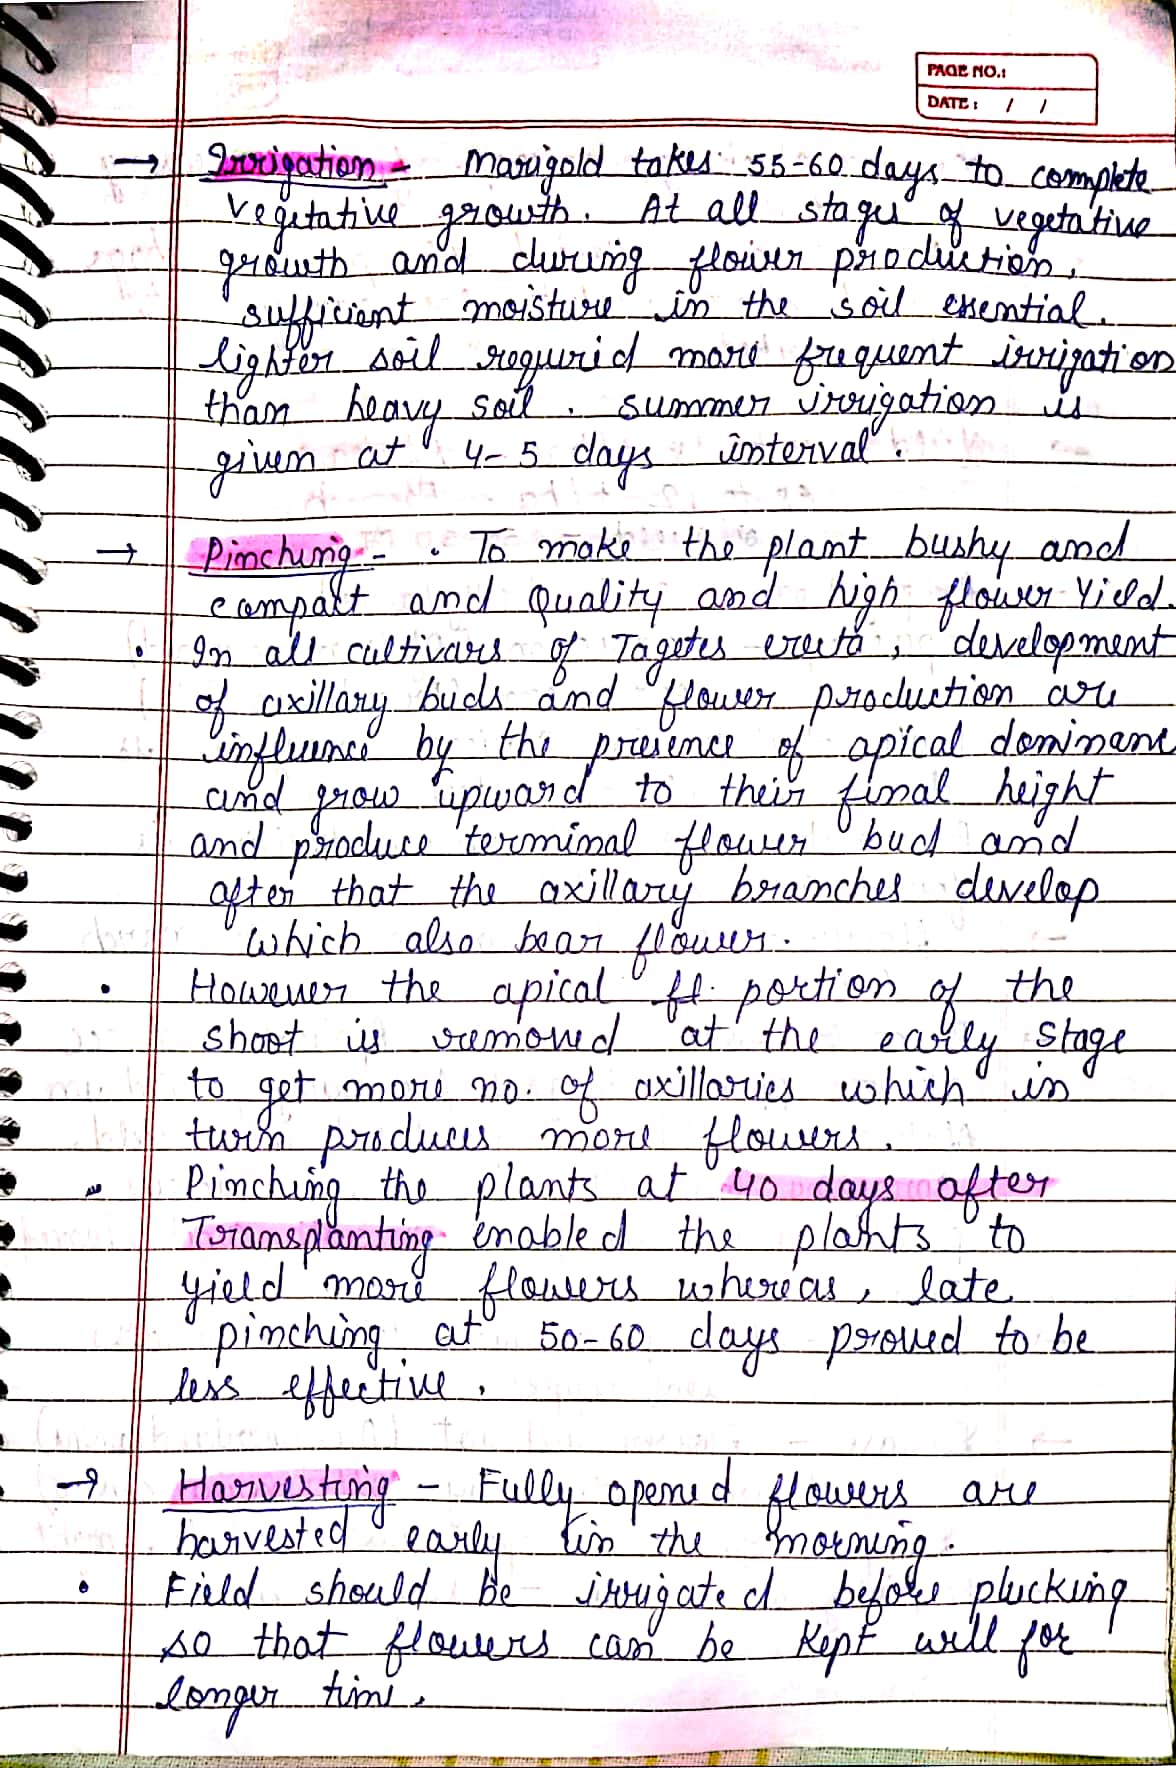 PAGE NO.:
DATE: / /
→ Irrigation - Marigold takes 55-60 days to complete
vegetative growth. At all stages of vegetative
growth and during flower production,
sufficient moisture in the soil essential.
lighter soil requrid more frequent irrigation
than heavy soil. summer irrigation is
given at 4-5 days interval.
→ Pinching - • To make the plant bushy and
compact and Quality and high flower Yield.
• In all cultivars of Tagetes erecta, development
of axillary buds and flower production are
influence by the presence of apical dominanc
and grow upward to their final height
and produce terminal flower bud and
after that the axillary branches develop
which also bear flower.
• However the apical portion of the
shoot is removed at the early stage
to get more no. of axillaries which in
turn produces more flowers.
Pinching the plants at 40 days after
Transplanting enabled the plants to
yield more flowers whereas, late
pinching at 50-60 days proved to be
less effective.
→ Harvesting - Fully opened flowers are
harvested early in the morning.
• Field should be irrigated before plucking
so that flowers can be kept well for
longer time.